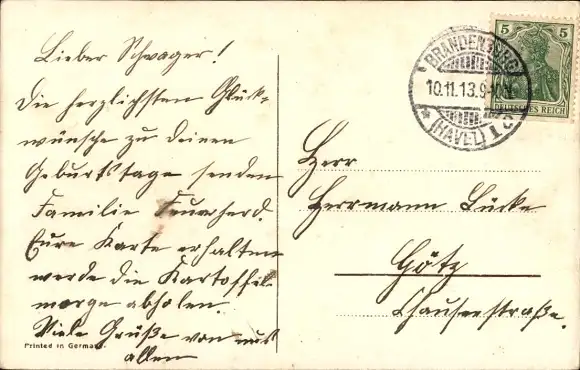 Lieber Schwager!
Die herzlichsten Glück-
wünsche zu deinen
Geburtstage senden
Familie Feuerherd.
Eure Karte erhalten
werde die Kartoffel
morge abholen.
Viele Grüße von uns
allen
Printed in Germany.
5 5
DEUTSCHES REICH
BRANDENBURG
10.11.13.9-10V.
* (HAVEL) 1 c
Herr
Herrmann Lücke
Götz
Chausseestraße.